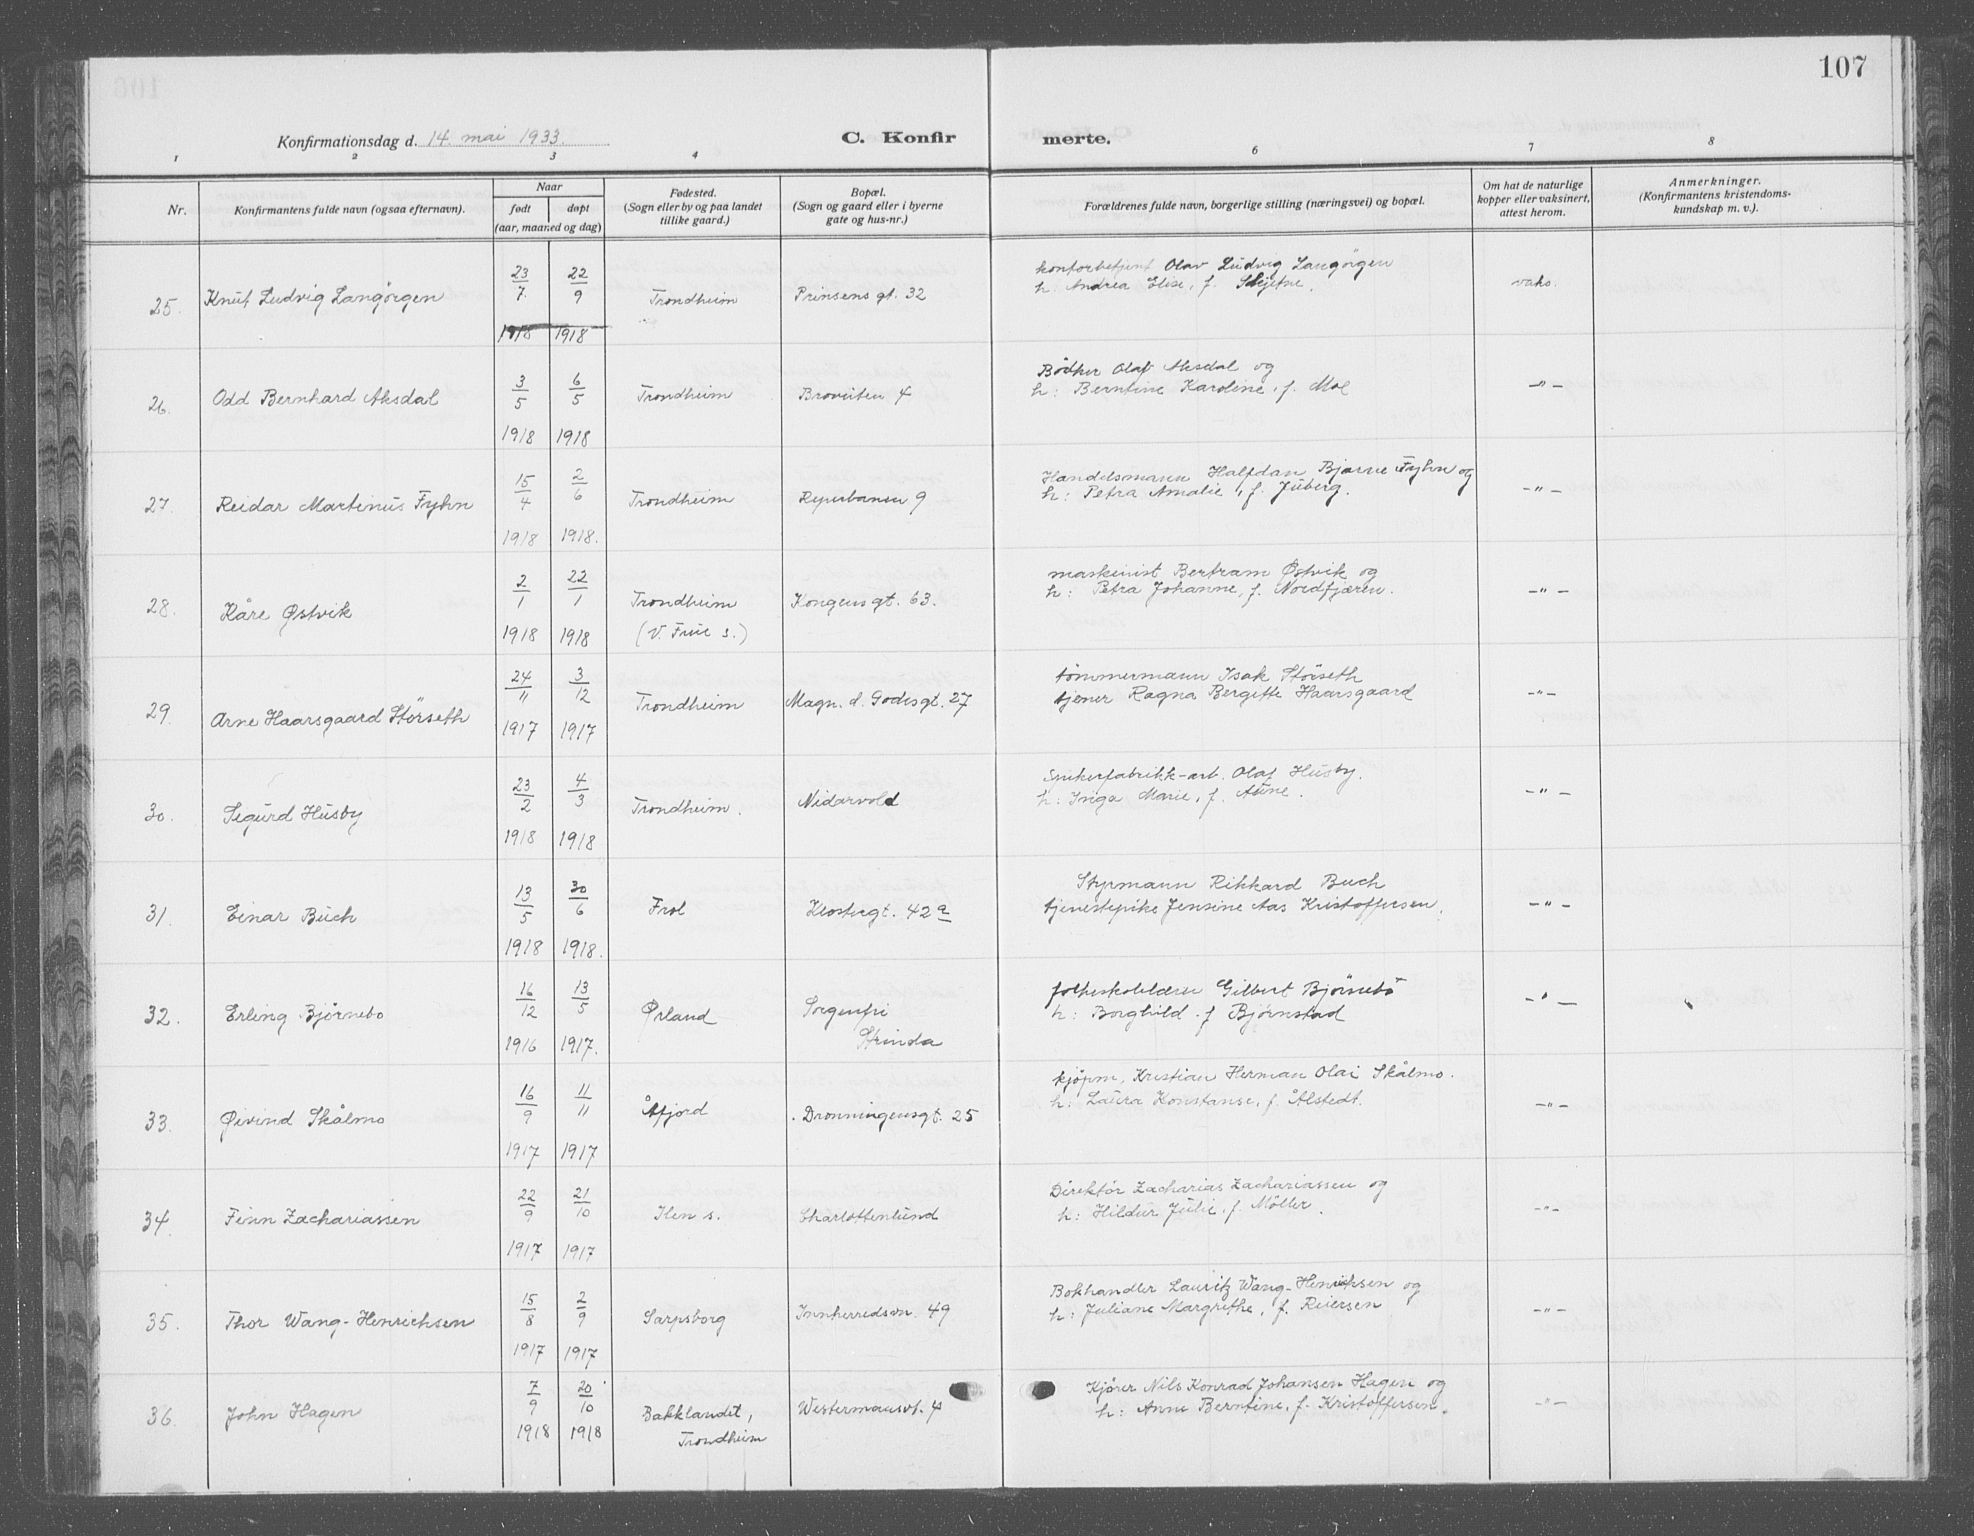 107
Konfirmationsdag d. 14. mai 1933.
C. Konfir
merte.
1 2 3 4 6 7 8
Nr.
Konfirmantens fulde navn (ogsaa efternavn).
Naar
født døpt
(aar, maaned og dag)
Fødested.
(Sogn eller by og paa landet
tillike gaard.)
Bopæl.
(Sogn og gaard eller i byerne
gate og hus-nr.)
Forældrenes fulde navn, borgerlige stilling (næringsvei) og bopæl.
Om hat de naturlige
kopper eller vaksinert,
attest herom.
Anmerkninger.
(Konfirmantens kristendoms-
kundskap m. v.).
25. Knut Ludvig Langörgen 23/7 1918 22/9 1918 Trondheim Prinsens gt. 32
kontorbetjent Olav Ludvig Langörgen
h. Andrea Elise, f. Skjetne. vaks.
26. Odd Bernhard Aksdal 3/5 1918 6/5 1918 Trondheim Broruten 4
Bödker Olaf Aksdal og
h: Berntine Karoline, f. Moe —"—
27. Reidar Martinus Fyhn 15/4 1918 2/6 1918. Trondheim Reperbanen 9
Handelsmann Halfdan Bjarne Fyhn og
h: Petra Amalie, f. Juberg. —"—
28. Kåre Østvik 2/1 1918 22/1 1918 Trondheim Kongens gt. 63.
(V. Frue s.)
maskinist Bertram Østvik og
h: Petra Johanne, f. Nordfjæren. —"—
29. Arne Haarsgaard Störseth 24/11 1917 3/12 1917 Trondheim Magn. d. Godesgt. 27
tömmermann Isak Störseth
tjener Ragna Bergitte Haarsgaard —"—
30. Sigurd Husby 23/2 1918 4/3 1918 Trondheim. Nidarvold
Spikerfabrikk-arb. Olaf Husby.
h: Inga Marie, f. Aune. —"—
31. Einar Buch 13/5 1918 30/6 1918. Frol Klostergt. 42 a
Styrmann Rikkard Buch
tjenestepike Jensine Aas Kristoffersen. —"—
32. Erling Bjørnebo 16/12 1916 13/5 1917. Ørland Sorgenfri
Strinda
folkeskolelærer Gilbert Bjørnebö
h: Borghild f. Bjørnstad —"—
33. Øivind Skålmo 16/9 1917 11/11 1917 Åfjord Dronningensgt. 25
kjöpm. Kristian Herman Olai Skålmo.
h: Laura Konstanse, f. Ålstedt. —"—
34. Finn Zachariassen 22/9 1917 21/10 1917 Ilen s. Charlottenlund
Direktör Zacharias Zachariassen og
h: Hildur Julie, f. Möller. —"—
35. Thor Wang-Henrichsen 15/8 1917 2/9 1917 Sarpsborg Innherredsvn. 49
Bokhandler Lauritz Wang-Henrichsen og
h: Juliane Margrethe, f. Reiersen —"—
36. John Hagen 7/9 1918 20/10 1918 Bakklandet,
Trondheim
Westermansvt. 4
Kjörer Nils Konrad Johansen Hagen og
h: Anne Berntine, f. Kristoffersen. —"—